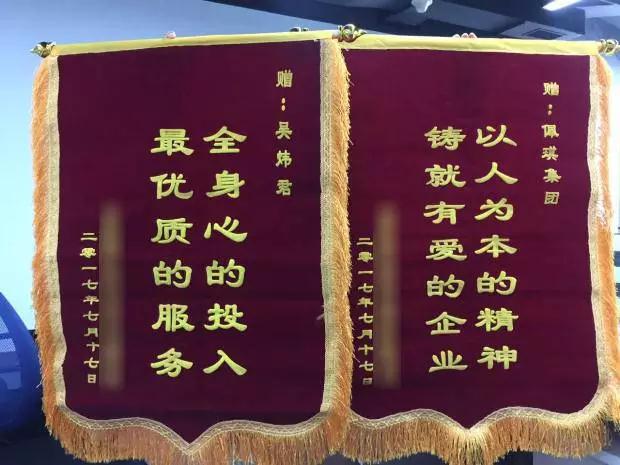 赠：吴炜君
全身心的投入
最优质的服务
二零一七年七月十七日
赠：佩琪集团
以人为本的精神
铸就有爱的企业
二零一七年七月十七日